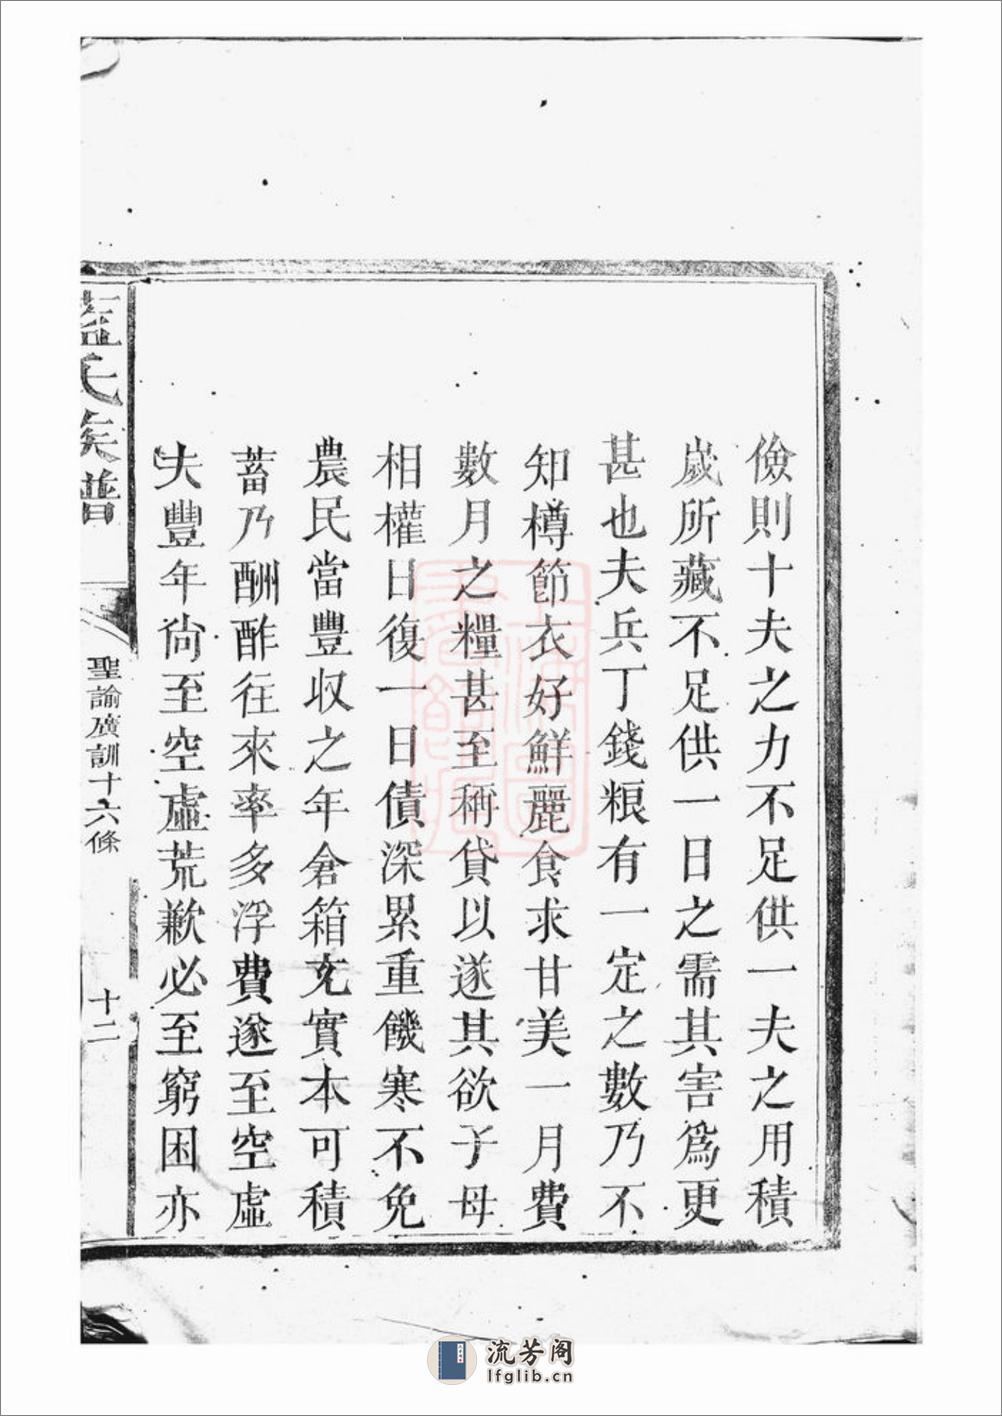 儉則十夫之力不足供一夫之用積
歲所藏不足供一日之需其害爲更
甚也夫兵丁錢粮有一定之數乃不
知樽節衣好鮮麗食求甘美一月費
數月之糧甚至稱貸以遂其欲子母
相權日復一日債深累重饑寒不免
農民當豐収之年倉箱充實本可積
蓄乃酬酢往來率多浮費遂至空虛
夫豐年尙至空虛荒歉必至窮困亦
氏族譜
聖諭廣訓十六條
十二
流芳阁
lfglib.cn